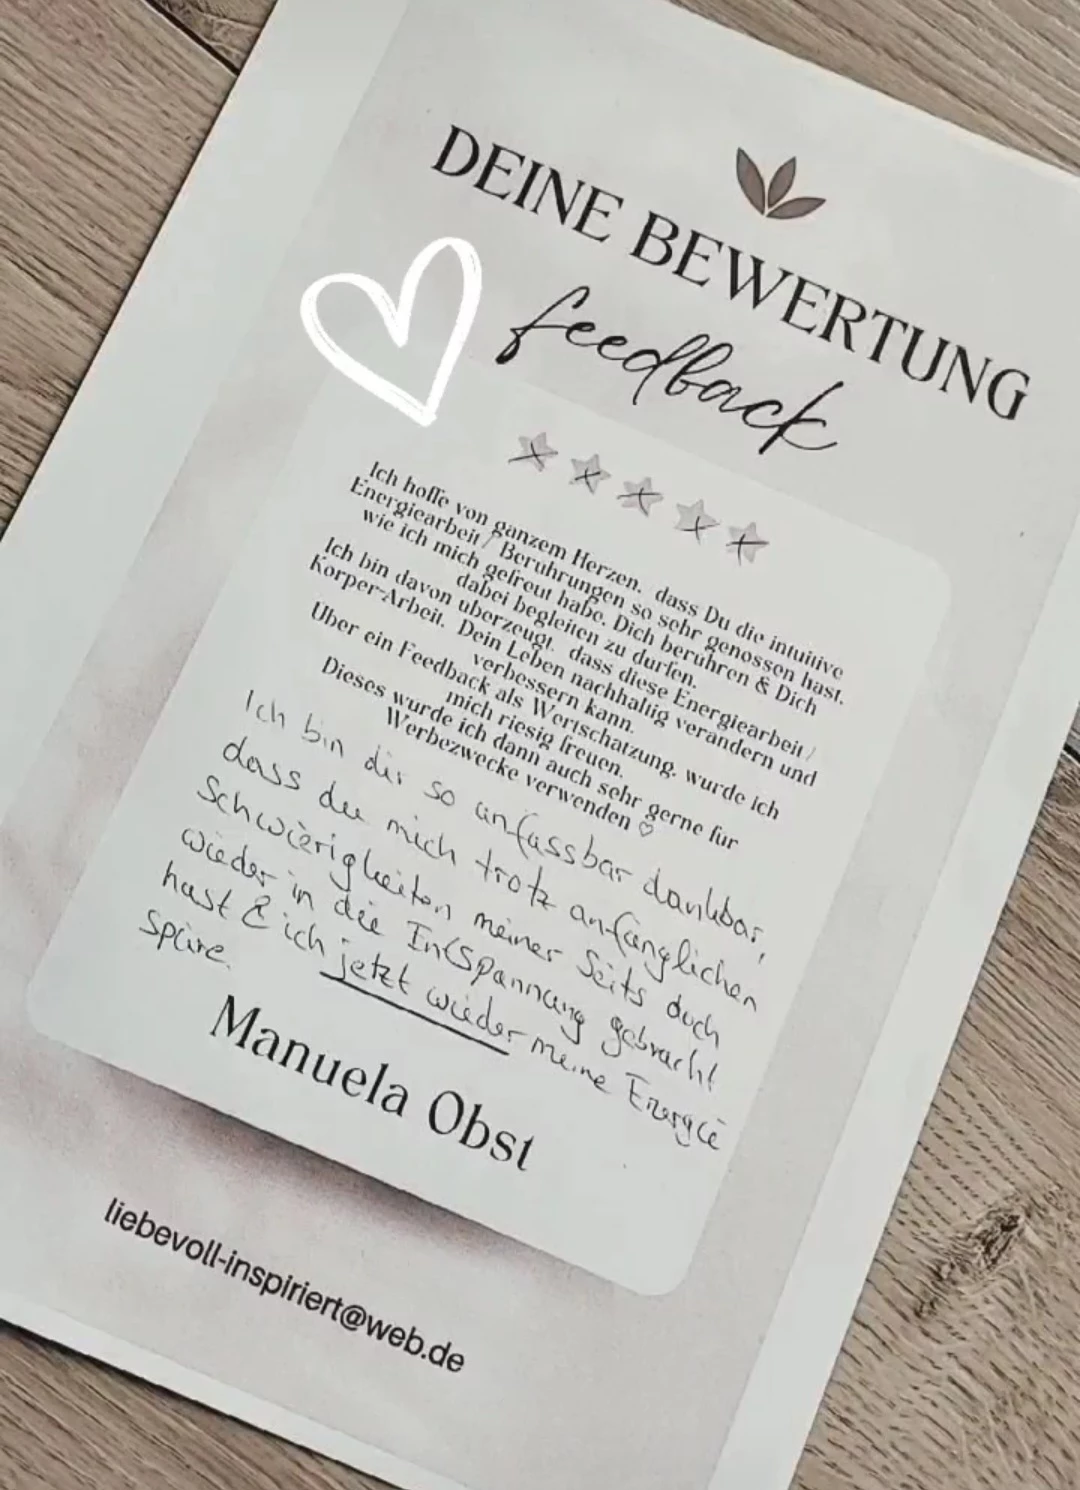 DEINE BEWERTUNG
feedback
Ich hoffe von ganzem Herzen, dass Du die intuitive
Energiearbeit / Berührungen so sehr genossen hast,
wie ich mich gefreut habe, Dich berühren & Dich
dabei begleiten zu dürfen.
Ich bin davon überzeugt, dass diese Energiearbeit /
Körper-Arbeit, Dein Leben nachhaltig verändern und
verbessern kann.
Über ein Feedback als Wertschätzung, würde ich
mich riesig freuen.
Dieses würde ich dann auch sehr gerne für
Werbezwecke verwenden ♡
Ich bin dir so anfassbar dankbar,
dass du mich trotz anfänglichen
Schwierigkeiten meiner Seits doch
wieder in die Entspannung gebracht
hast & ich jetzt wieder meine Energie
spüre.
Manuela Obst
liebevoll-inspiriert@web.de